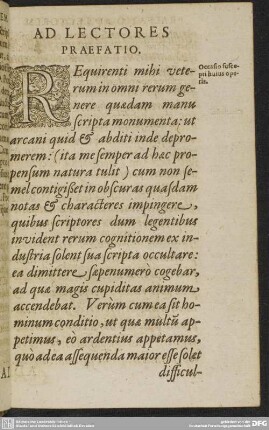 AD LECTORES
PRAEFATIO.
REquirenti mihi vete-
rum in omni rerum ge-
nere quædam manu
scripta monumenta: ut
arcani quid & abditi inde depro-
merem: (ita me semper ad hæc pro-
pensum natura tulit) cum non se-
mel contigißet in obscuras quasdam
notas & characteres impingere,
quibus scriptores dum legentibus
invident rerum cognitionem ex in-
dustria solent sua scripta occultare:
ea dimittere sæpenumerò cogebar,
ad quæ magis cupiditas animum
accendebat. Verùm cum ea sit ho-
minum conditio, ut quæ multũ ap-
petimus, eo ardentius appetamus,
quò ad ea assequenda maior esse solet
difficul-
Occasio susce-
pti huius ope-
ris.